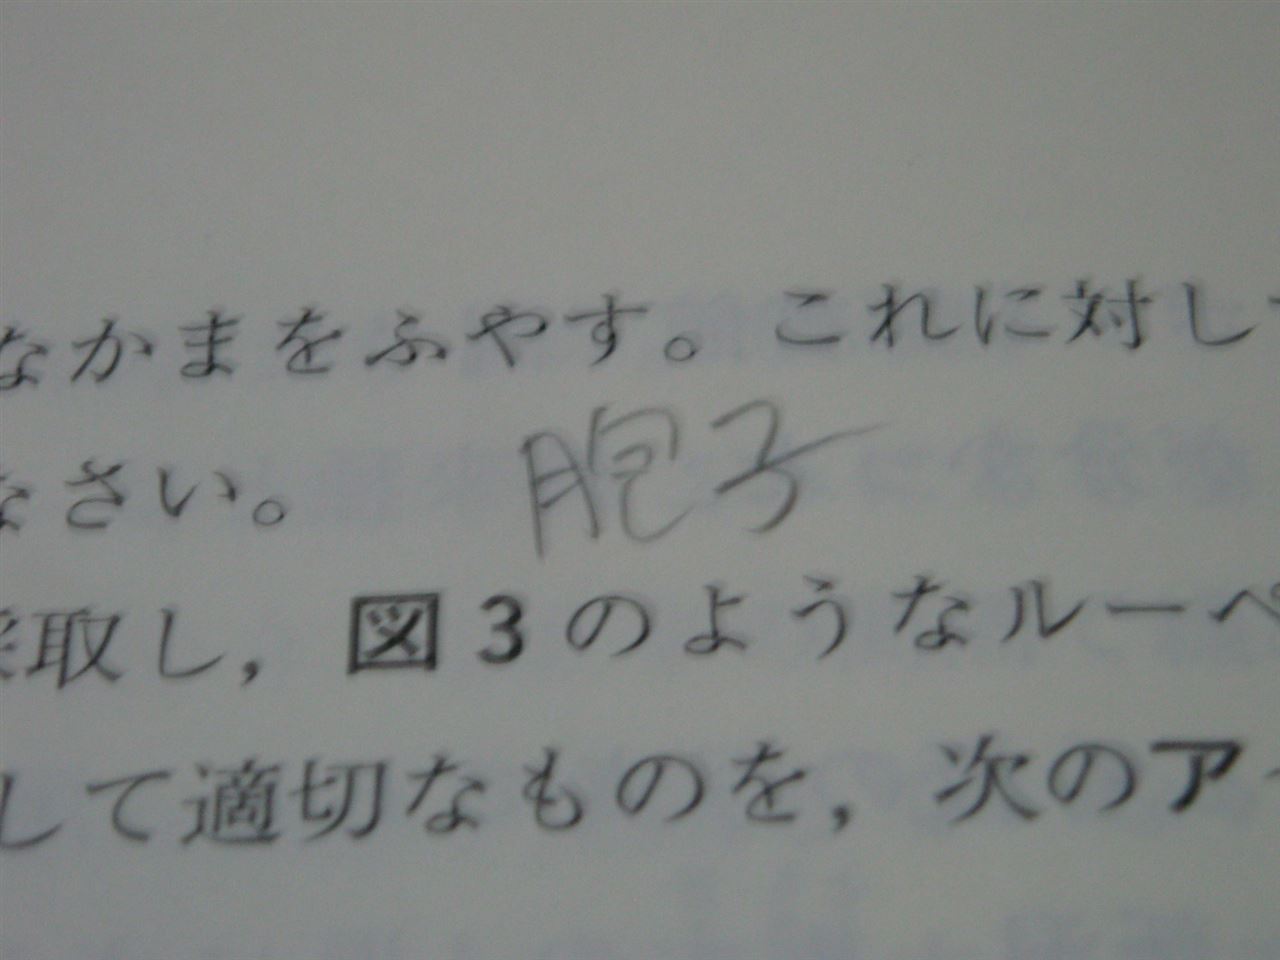 なかまをふやす。これに対して
なさい。 胞子
採取し，図3のようなルーペ
して適切なものを，次のア